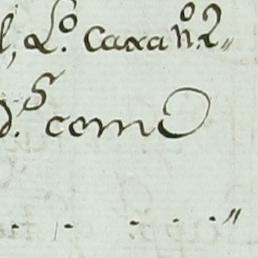 l, L.º Caxa n.º 2,,
d.s como